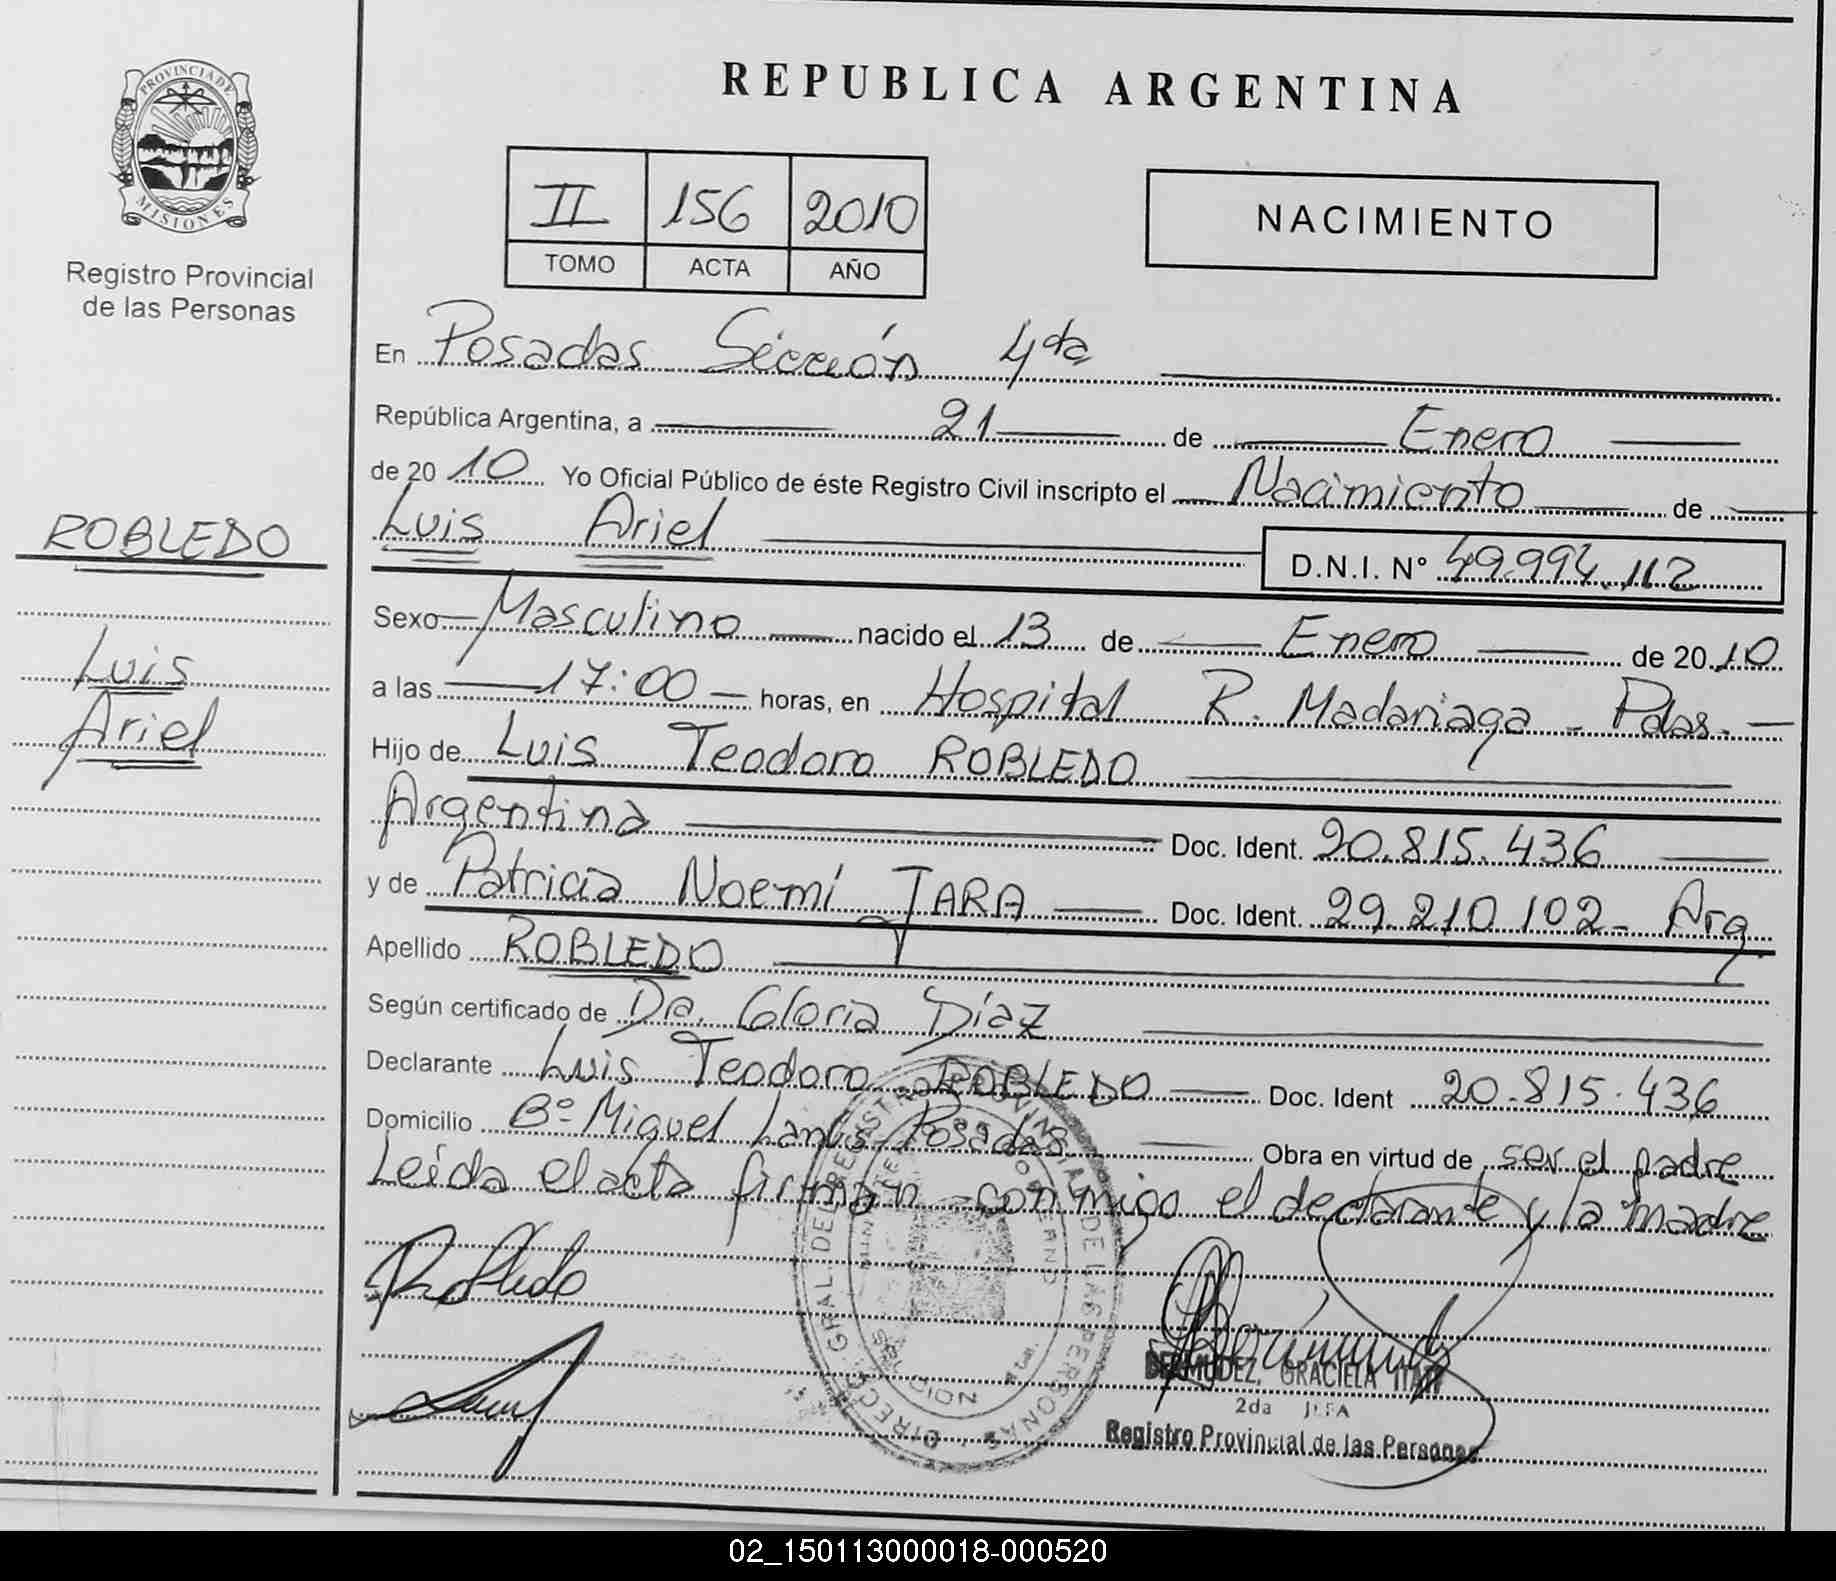 PROVINCIA DE
MISIONES
Registro Provincial
de las Personas
ROBLEDO
Luis
Ariel
REPUBLICA ARGENTINA
II 156 2010
TOMO ACTA AÑO
NACIMIENTO
En Posadas Sección 4ta
República Argentina, a 21 de Enero
de 2010 Yo Oficial Público de éste Registro Civil inscripto el Nacimiento de
Luis Ariel D.N.I. Nº 49.994.112
Sexo Masculino nacido el 13 de Enero de 2010
a las 17:00 horas, en Hospital R. Madariaga - Pdas.
Hijo de Luis Teodoro ROBLEDO
Argentina Doc. Ident. 20.815.436
y de Patricia Noemí JARA Doc. Ident. 29.210.102 - Arg
Apellido ROBLEDO
Según certificado de Dra. Gloria Díaz
Declarante Luis Teodoro ROBLEDO Doc. Ident 20.815.436
Domicilio Bº Miguel Lanús Posadas Obra en virtud de ser el padre
Leída el acta firman conmigo el declarante y la madre
Robledo
BERMUDEZ, GRACIELA ITATI
2da JEFA
Registro Provincial de las Personas
02_150113000018-000520